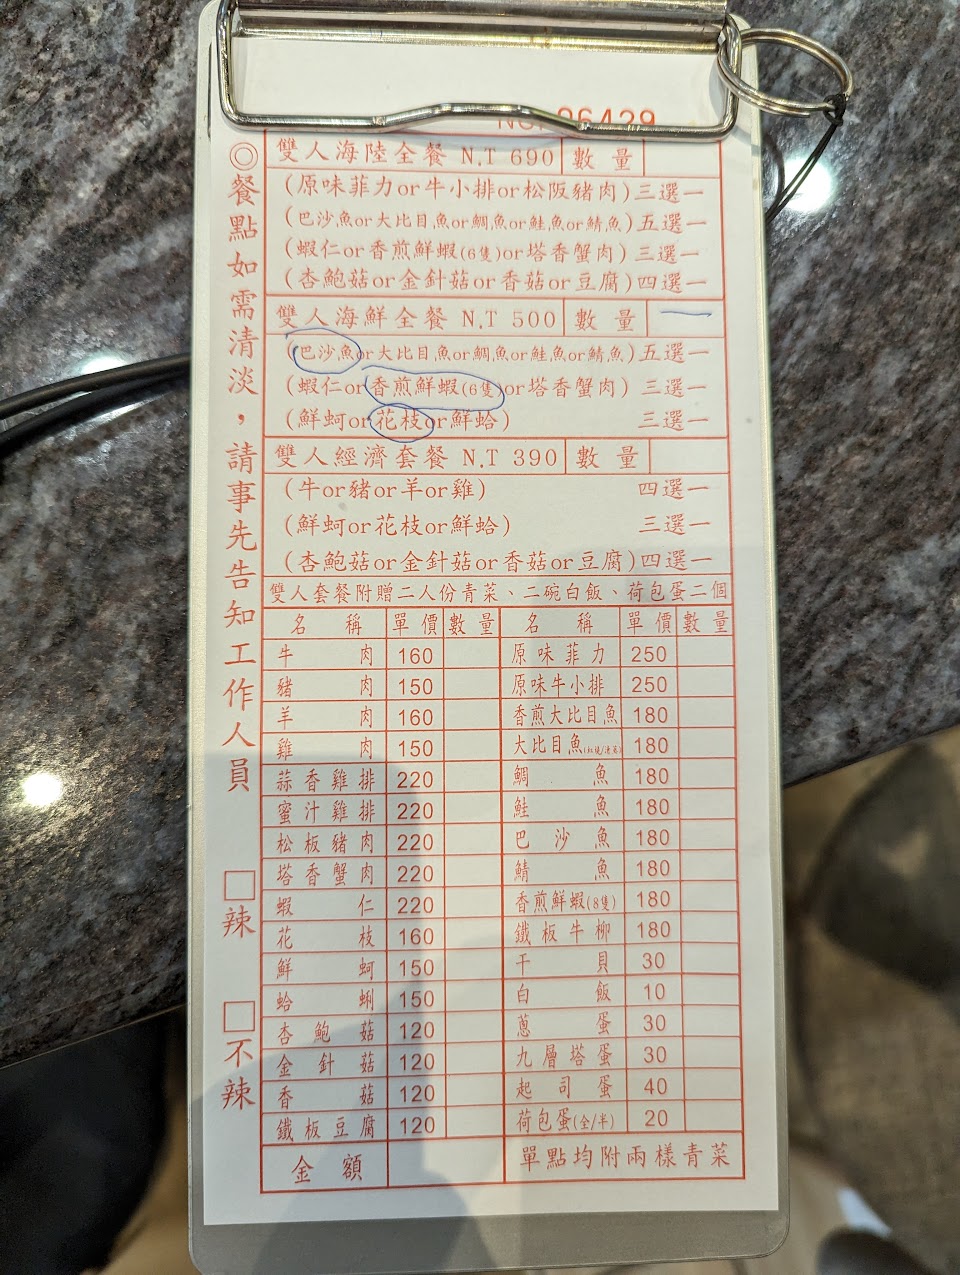 96429
◎餐點如需清淡，請事先告知工作人員
□辣
□不辣
雙人海陸全餐 N.T 690 數量
(原味菲力or牛小排or松阪豬肉)三選一
(巴沙魚or大比目魚or鯛魚or鮭魚or鯖魚) 五選一
(蝦仁or香煎鮮蝦(6隻)or塔香蟹肉) 三選一
(杏鮑菇or金針菇or香菇or豆腐)四選一
雙人海鮮全餐 N.T 500 數量 一
(巴沙魚or大比目魚or鯛魚or鮭魚or鯖魚) 五選一
(蝦仁or香煎鮮蝦(6隻)or塔香蟹肉) 三選一
(鮮蚵or花枝or鮮蛤) 三選一
雙人經濟套餐 N.T 390 數量
(牛or豬or羊or雞) 四選一
(鮮蚵or花枝or鮮蛤) 三選一
(杏鮑菇or金針菇or香菇or豆腐)四選一
雙人套餐附贈二人份青菜、二碗白飯、荷包蛋二個
名稱 單價 數量 名稱 單價 數量
牛肉 160 原味菲力 250
豬肉 150 原味牛小排 250
羊肉 160 香煎大比目魚 180
雞肉 150 大比目魚 180
蒜香雞排 220 鯛魚 180
蜜汁雞排 220 鮭魚 180
松板豬肉 220 巴沙魚 180
塔香蟹肉 220 鯖魚 180
蝦仁 220 香煎鮮蝦(8隻) 180
花枝 160 鐵板牛柳 180
鮮蚵 150 干貝 30
蛤蜊 150 白飯 10
杏鮑菇 120 蔥蛋 30
金針菇 120 九層塔蛋 30
香菇 120 起司蛋 40
鐵板豆腐 120 荷包蛋(全/半) 20
金額 單點均附兩樣青菜